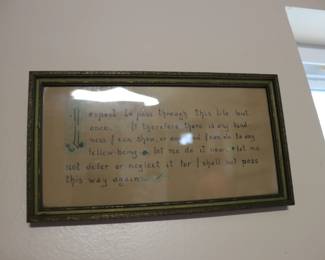 I expect to pass through this life but
once. If therefore there is any kind
ness I can show, or any good I can do to any
fellow-being let me do it now let me
not defer or neglect it for I shall not pass
this way again